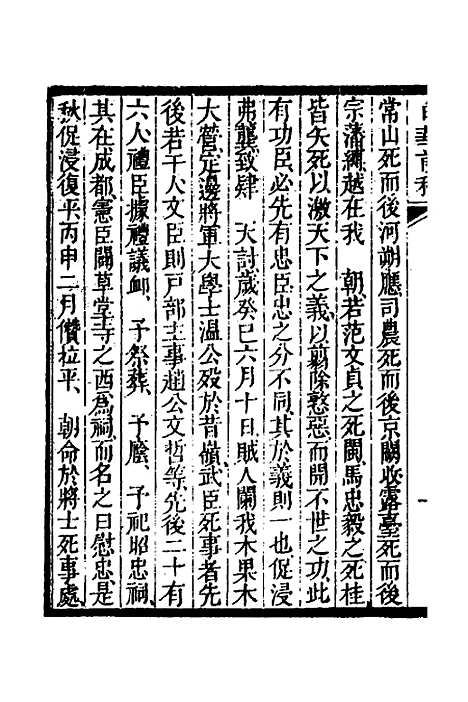 常山死而後河朔應司農死而後京關收露臺死而後
宗藩纘越在我　朝若范文貞之死閩馬忠毅之死桂
皆矢死以激天下之義以翦除憝惡而開不世之功此
有功臣必先有忠臣忠之分不同其於義則一也促浸
弗龔致肆　天討歲癸巳六月十日賊人闌我木果木
大營定邊將軍大學士溫公歿於昔嶺武臣死事者先
後若干人文臣則戸部主事趙公文哲等先後二十有
六人禮臣據禮議卹　予祭葬　予廕　予祀昭忠祠
其在成都憲臣闢草堂寺之西爲祠而名之曰慰忠是
秋促浸復平丙申二月儹拉平　朝命於將士死事處